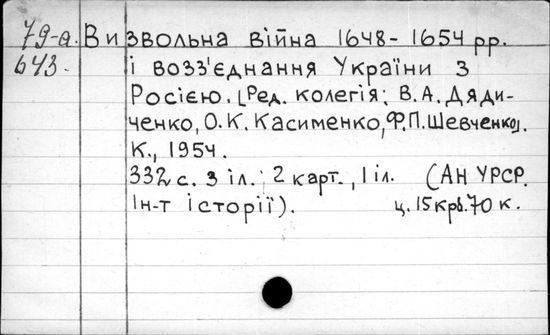 79-а. Визвольна війна 1648-1654 рр.
643. і возз'єднання України з
Росією. [Ред. колегія: В.А. Дяди-
ченко, О.К. Касименко, Ф.П. Шевченко].
К., 1954.
332 с. з іл.; 2 карт., 1 іл. (АН УРСР.
Ін-т історії). ц. 15 крб. 70 к.